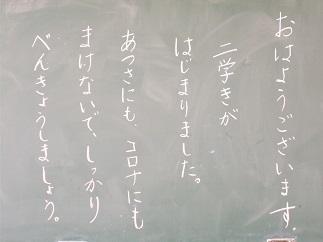 おはようございます。
二学きが
はじまりました。
あつさにも、コロナにも
まけないで、しっかり
べんきょうしましょう。